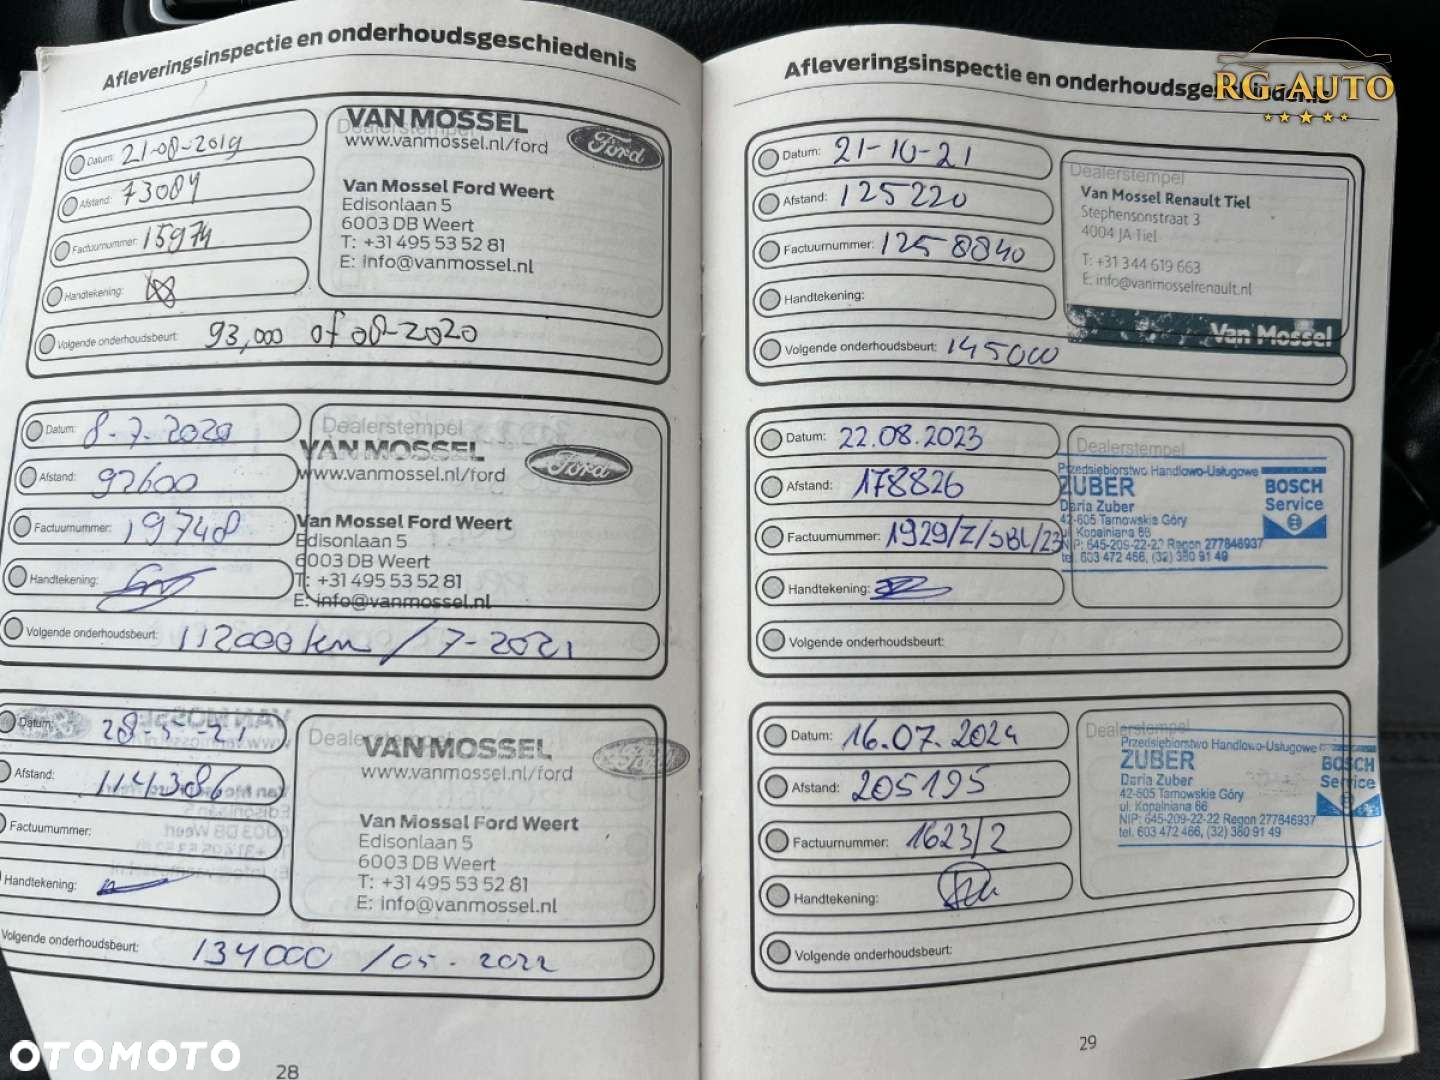 Afleveringsinspectie en onderhoudsgeschiedenis
Datum: 21-08-2019
Afstand: 73084
Factuurnummer: 15974
Handtekening:
Volgende onderhoudsbeurt: 93,000 of 08-2020
Dealerstempel
VAN MOSSEL
www.vanmossel.nl/ford
Ford
Van Mossel Ford Weert
Edisonlaan 5
6003 DB Weert
T: +31 495 53 52 81
E: info@vanmossel.nl
Datum: 8-7-2020
Afstand: 92600
Factuurnummer: 19748
Handtekening:
Volgende onderhoudsbeurt: 112000 km / 7-2021
Dealerstempel
VAN MOSSEL
www.vanmossel.nl/ford
Ford
Van Mossel Ford Weert
Edisonlaan 5
6003 DB Weert
T: +31 495 53 52 81
E: info@vanmossel.nl
Datum: 28-5-21
Afstand: 114386
Factuurnummer:
Handtekening:
Volgende onderhoudsbeurt: 134000 /05-2022
Dealerstempel
VAN MOSSEL
www.vanmossel.nl/ford
Ford
Van Mossel Ford Weert
Edisonlaan 5
6003 DB Weert
T: +31 495 53 52 81
E: info@vanmossel.nl
28
Afleveringsinspectie en onderhoudsgeschiedenis
RG-AUTO
Datum: 21-10-21
Afstand: 125220
Factuurnummer: 1258840
Handtekening:
Volgende onderhoudsbeurt: 145000
Dealerstempel
Van Mossel Renault Tiel
Stephensonstraat 3
4004 JA Tiel
T: +31 344 619 663
E: info@vanmosselrenault.nl
Van Mossel
Datum: 22.08.2023
Afstand: 178826
Factuurnummer: 1929/Z/SBL/23
Handtekening:
Volgende onderhoudsbeurt:
Dealerstempel
Przedsiębiorstwo Handlowo-Usługowe
ZUBER
Daria Zuber
42-605 Tarnowskie Góry
ul. Kopalniana 86
NIP: 645-209-22-22 Regon 277846937
tel. 603 472 466, (32) 380 91 49
BOSCH
Service
Datum: 16.07.2024
Afstand: 205195
Factuurnummer: 1623/2
Handtekening:
Volgende onderhoudsbeurt:
Dealerstempel
Przedsiębiorstwo Handlowo-Usługowe
ZUBER
Daria Zuber
42-605 Tarnowskie Góry
ul. Kopalniana 86
NIP: 645-209-22-22 Regon 277846937
tel. 603 472 466, (32) 380 91 49
BOSCH
Service
29
OTOMOTO